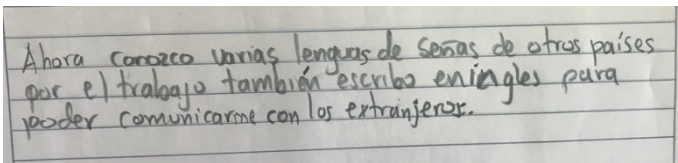 Ahora conozco varias lenguas de señas de otros países
por el trabajo también escribo en ingles para
poder comunicarme con los extranjeros.